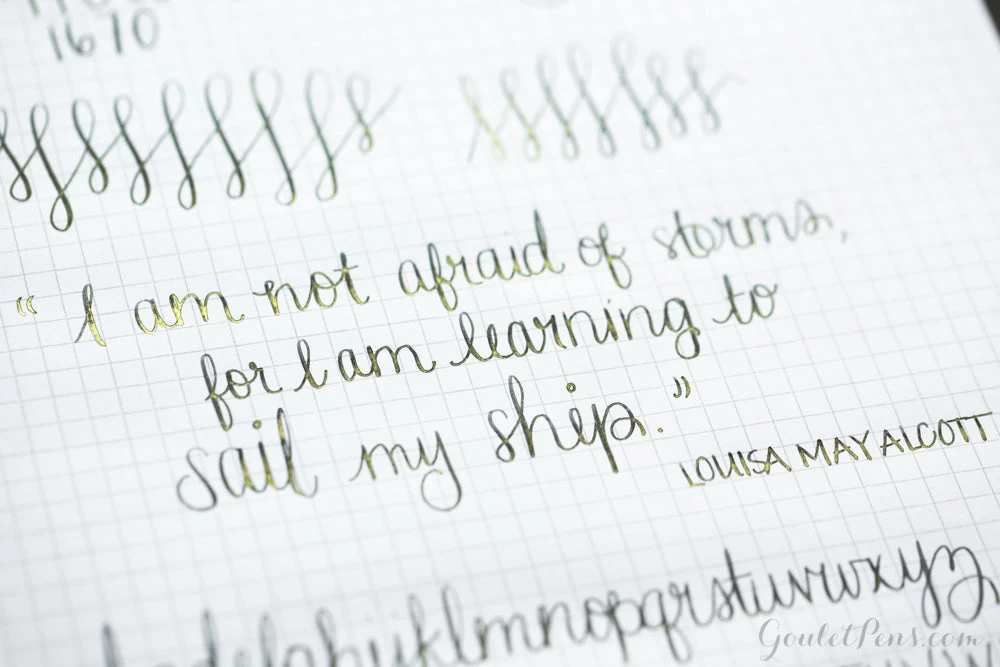 1670
“ I am not afraid of storms,
for I am learning to
sail my ship.”
LOUISA MAY ALCOTT
jklmnopqrstuvwxyz
GouletPens.com